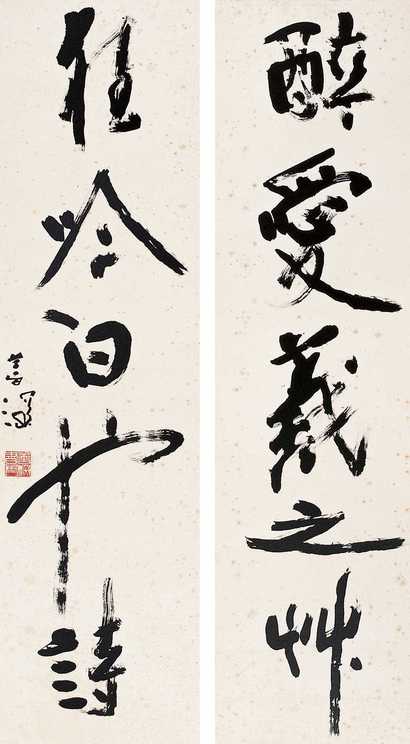 醉愛羲之艸
狂吟白也詩